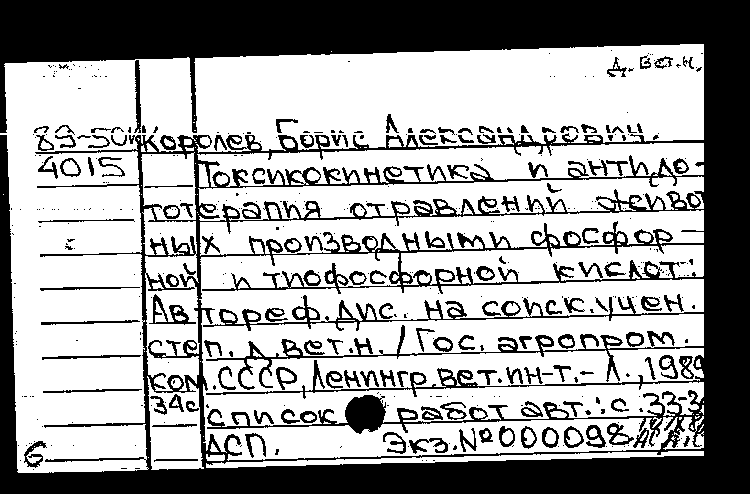 Д. вет.н.
89-50 Королев, Борис Александрович.
4015 Токсикокинетика и антидо-
тотерапия отравлений живот
ных производными фосфор-
ной и тиофосфорной кислот:
Автореф. дис. на соиск. учен.
степ. д. вет. н. / Гос. агропром.
ком. СССР, Ленингр. вет. ин-т. - Л., 1989
34с список работ авт.: с. 33-3
ДСП. Экз. № 000098
6